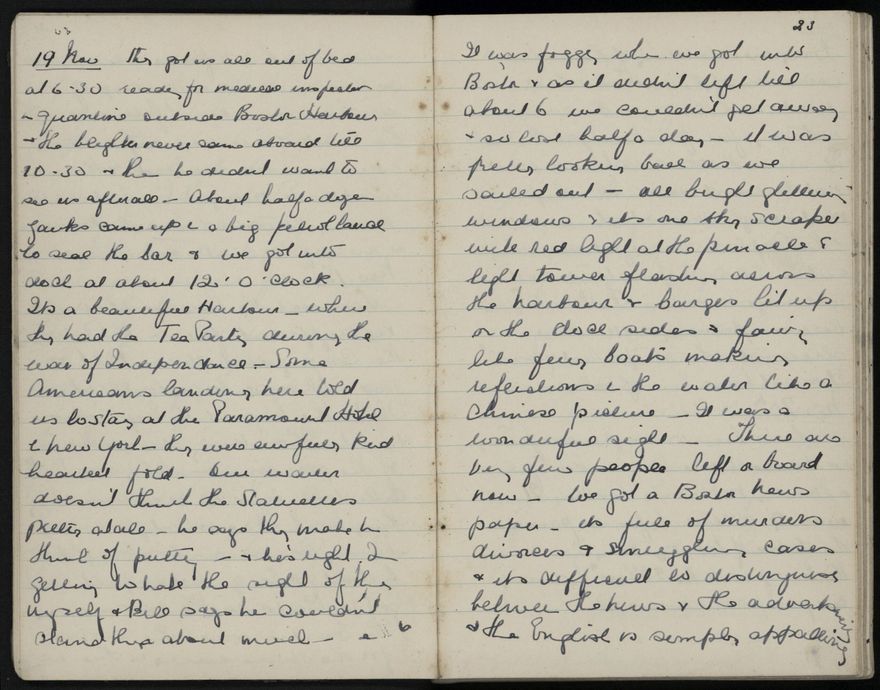 19 Nov They got us all out of bed
at 6-30 ready for medical inspection
in quarantine outside Boston Harbour
& the blighter never came aboard till
10-30 & then he didn't want to
see us after all - About half a dozen
Yanks came up in a big petrol launch
to seal the bar & we got into
dock at about 12 o'clock.
Its a beautiful Harbour - where
they had the Tea Party during the
war of Independence - Some
Americans landing here told
us to stay at the Paramount Hotel
in New York - they were awfully kind
hearted folk - Our waiter
doesn't think the Statuettes
pretty at all - he says they make him
think of putty - & he's right I'm
getting to hate the sight of them
myself & Bill says he couldn't
stand them about much -
23
It was foggy when we got into
Boston & as it didn't lift till
about 6 we couldn't get away
& so lost half a day - it was
pretty looking back as we
sailed out - all bright glittering
windows & its one sky scraper
with red light at the pinnacle &
light tower flashing across
the harbour & barges lit up
on the dock sides & fairy
like ferry boats making
reflections in the water like a
Chinese picture - It was a
wonderful sight - There are
very few people left on board
now - We got a Boston news
paper - its full of murders
divorces & smuggling cases
& its difficult to distinguish
between the news & the advertising
& the English is simply appalling